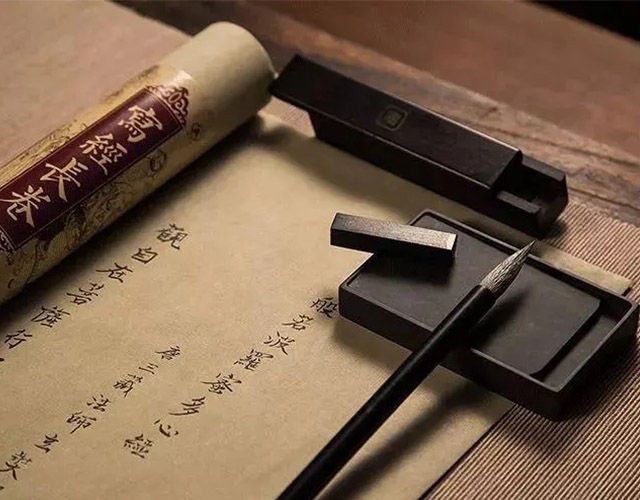 寫經長卷
般若波羅蜜多心經
唐三藏法師玄奘
觀自在菩薩行